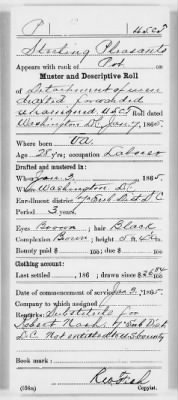 P U.S.C.T.
Sterling Pleasants
Appears with rank of Pvt on
Muster and Descriptive Roll
of Detachment of men
drafted forwarded
unassigned, U.S.C.T. Roll dated
Washington, D.C. Jan. 7, 1865.
Where born Va.
Age 28 yrs; occupation Laborer
Drafted and mustered in:
When Jan. 3, 1865.
Where Washington D.C.
Enrollment district 7" Sub Dist D.C.
Period 3 years.
Eyes Brown; hair Black
Complexion Brown; height 5 ft. in.
Bounty paid $ 100; due $ 100
Clothing account:
Last settled , 186 ; drawn since $26 84/100
Date of commencement of service Jan. 3, 1865.
Company to which assigned
Remarks: Substitute for
Robert Nash, 7" Sub Dist.
D.C. Not entitled to U.S. bounty
Book mark:
Copyist.